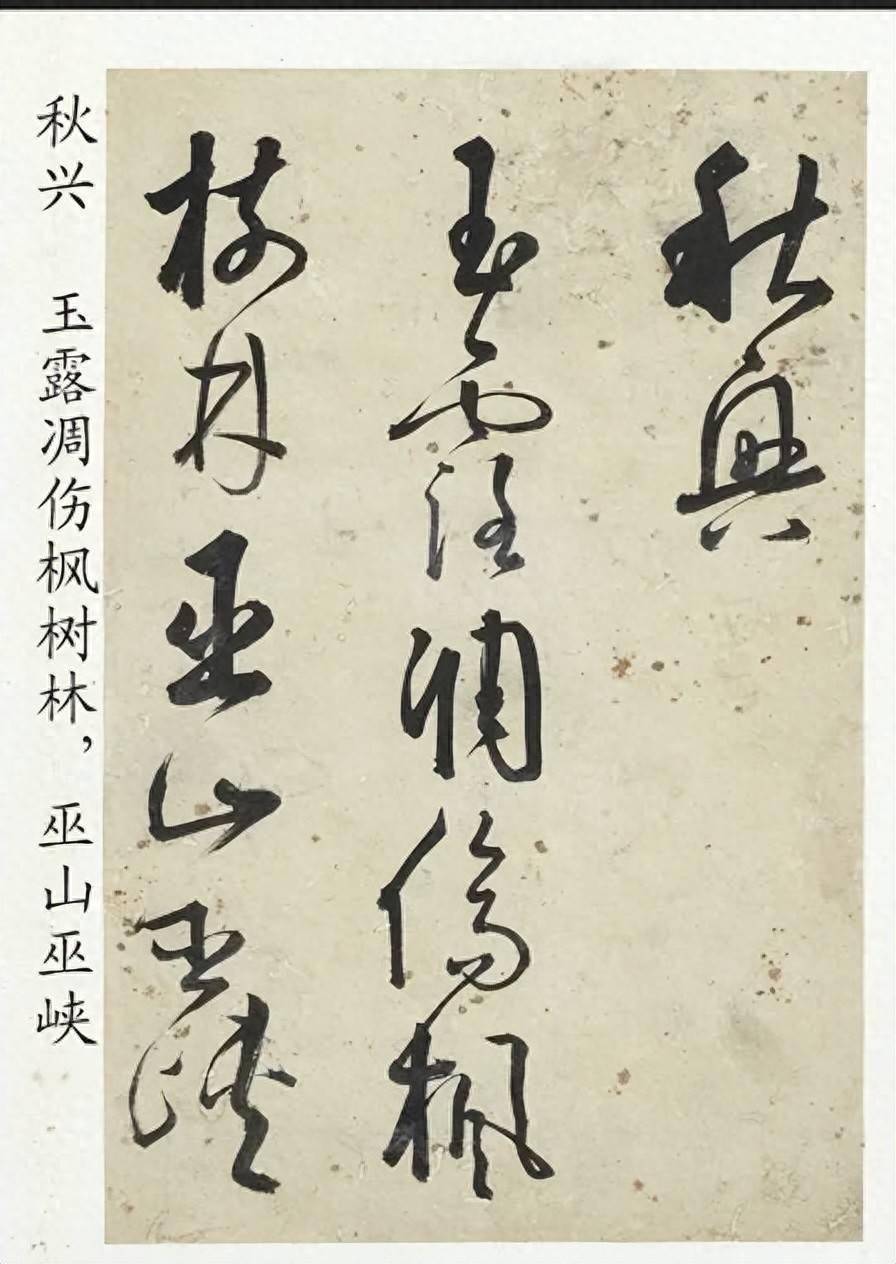 秋興
玉露凋傷楓
樹林巫山巫峽
秋兴 玉露凋伤枫树林，巫山巫峡